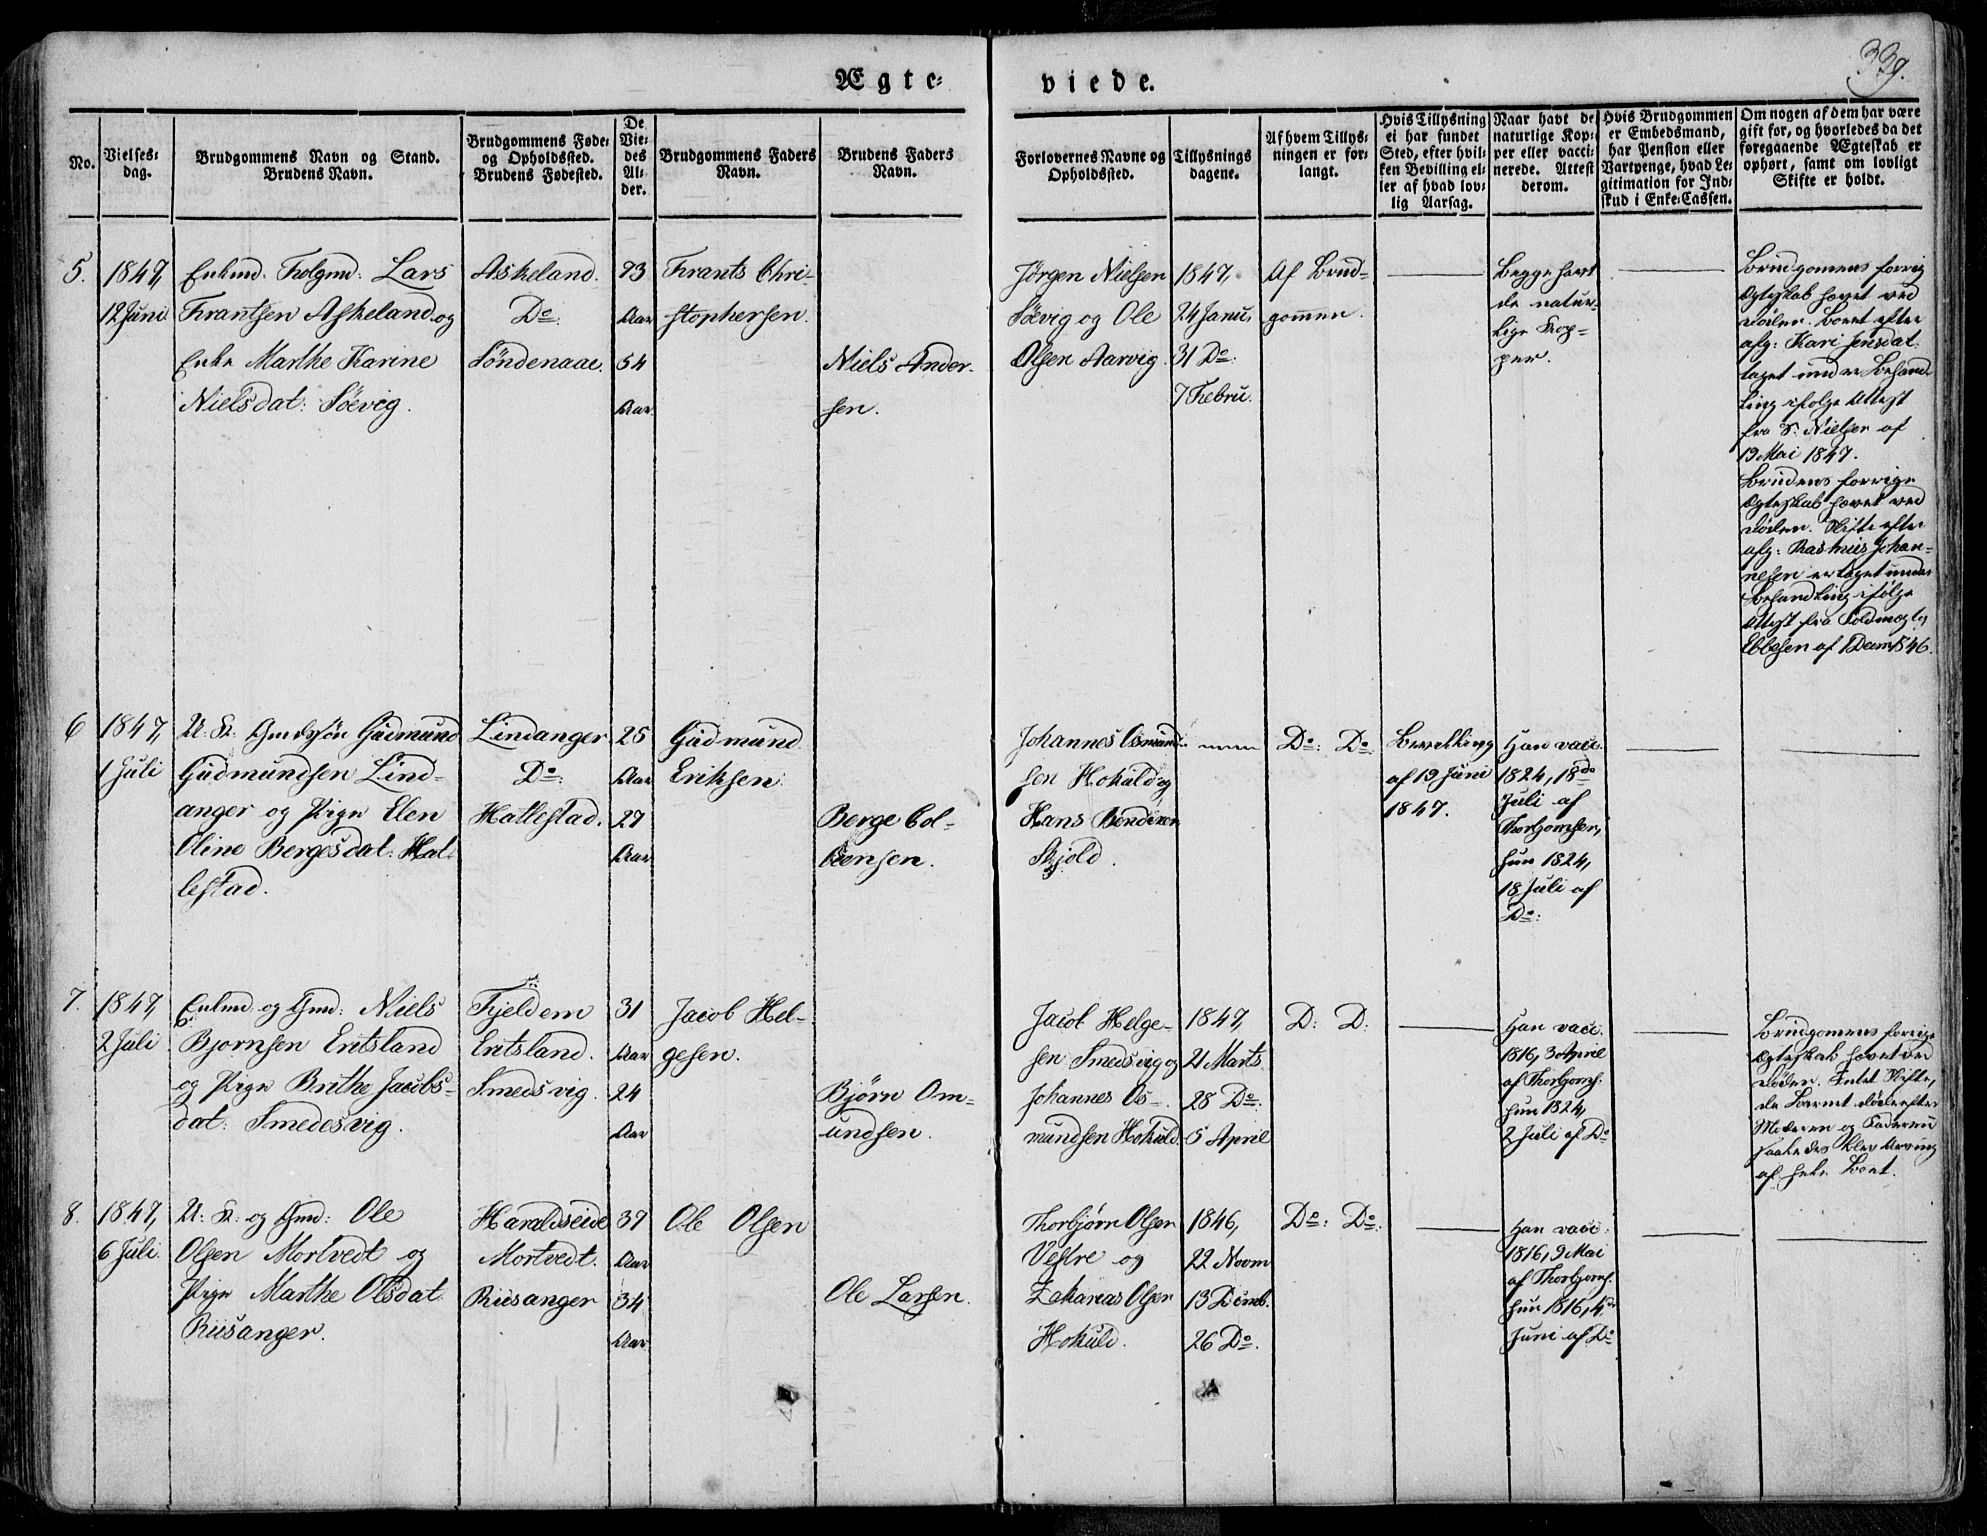 339.
Ægte-
viede.
No.
Vielses-
dag.
Brudgommens Navn og Stand.
Brudens Navn.
Brudgommens Føde-
og Opholdssted.
Brudens Fødested.
De
Vie-
des
Al-
der.
Brudgommens Faders
Navn.
Brudens Faders
Navn.
Forlovernes Navne og
Opholdssted.
Tillysnings
dagene.
Af hvem Tillys-
ningen er for-
langt.
Hvis Tillysning
ei har fundet
Sted, efter hvil-
ken Bevilling el-
ler af hvad lov-
lig Aarsag.
Naar havt de
naturlige Kop-
per eller vacci-
nerede. Attest
derom.
Hvis Brudgommen
er Embedsmand,
har Pension eller
Vartpenge, hvad Le-
gitimation for Ind-
skud i Enke-Cassen.
Om nogen af dem har være
gift for, og hvorledes da det
foregaaende Ægteskab er
ophørt, samt om lovligt
Skifte er holdt.
5.
1847,
12 Juni
Enkmd: Folgmd: Lars
Frantsen Askeland og
Enke Marthe Karine
Nielsdat: Søevig.
Askeland.
Do:
Søndenaae.
73
Aar
54
Aar
Frants Chri-
stophersen.
Niels Ander-
sen.
Jørgen Nielsen
Søevig og Ole
Olsen Aarvig.
1847,
24 Janu.
31 Do:
7 Febru.
Af Brud-
gommen.
Begge havt
de natur-
lige Kop-
per.
Brudgomens forrig
Ægteskab hævet ved
Døden. Boet efter
afg: Kari Jensdat.
taget under Behand-
ling ifølge Attest
fra S. Nielsen af
19 Mai 1847.
Brudens forrige
Ægteskab hævet ved
Døden. Skifte efter
afg: Rasmus Johan-
nesen er taget under
Behandling ifølge
Attest fra
Ebbesen af 1 Decm 1846.
6
1847,
1 Juli
U: K: Gmdssøn Gudmund
Gudmundsen Lind-
anger og Pign Elen
Oline Bergesdat: Hal-
lestad.
Lindanger
Do:
Hallestad.
25
Aar
27
Aar
Gudmund
Eriksen.
Berge Col-
bensen.
Johannes Osmund-
sen Hokuld og
Hans Bendixen
Skjold.
Do: Do:
Bevilling
af 19 Juni
1847.
Han vacc:
1824, 18de
Juli af
Thorbjornsen,
hun 1824,
18 Juli af
Do:
7.
1847,
2 Juli
Enkmd og Gmd: Niels
Bjornsen Eritsland
og Pign Brithe Jacobs-
dat: Smedesvig.
Fjeldem
Eritsland.
Smedsvig
31
Aar
24
Aar
Jacob Hel-
gesen.
Bjørn Om-
undsen.
Jacob Helge-
sen Smedsvig og
Johannes Os-
mundsen Hokuld
1847,
21 Marts
28 Do:
5 April
D: D:
Han vacc:
1816, 3 April
af Thorbjornf.
hun 1824,
2 Juli af Do
Brudgomens forrige
Ægteskab hævet ved
Døden. Intet Skifte,
da Barnet døde efter
Moderen og Faderen
saaledes blev Arving
af hele Boet.
8.
1847,
6 Juli
U: K: og Gmd: Ole
Olsen Mortvedt og
Pign Marthe Olsdat:
Riisanger.
Haraldseide
Mortvedt.
Riisanger
37
Aar
34
Aar
Ole Olsen
Ole Larsen.
Thorbjørn Olsen
Vestre og
Zakarias Olsen
Hokuld.
1846,
22 Novm
13 Decmb.
26 Do:
Do: Do:
Han vacc:
1816, 9 Mai
af Thorbjornf.
hun 1816, 4de
Juni af Do